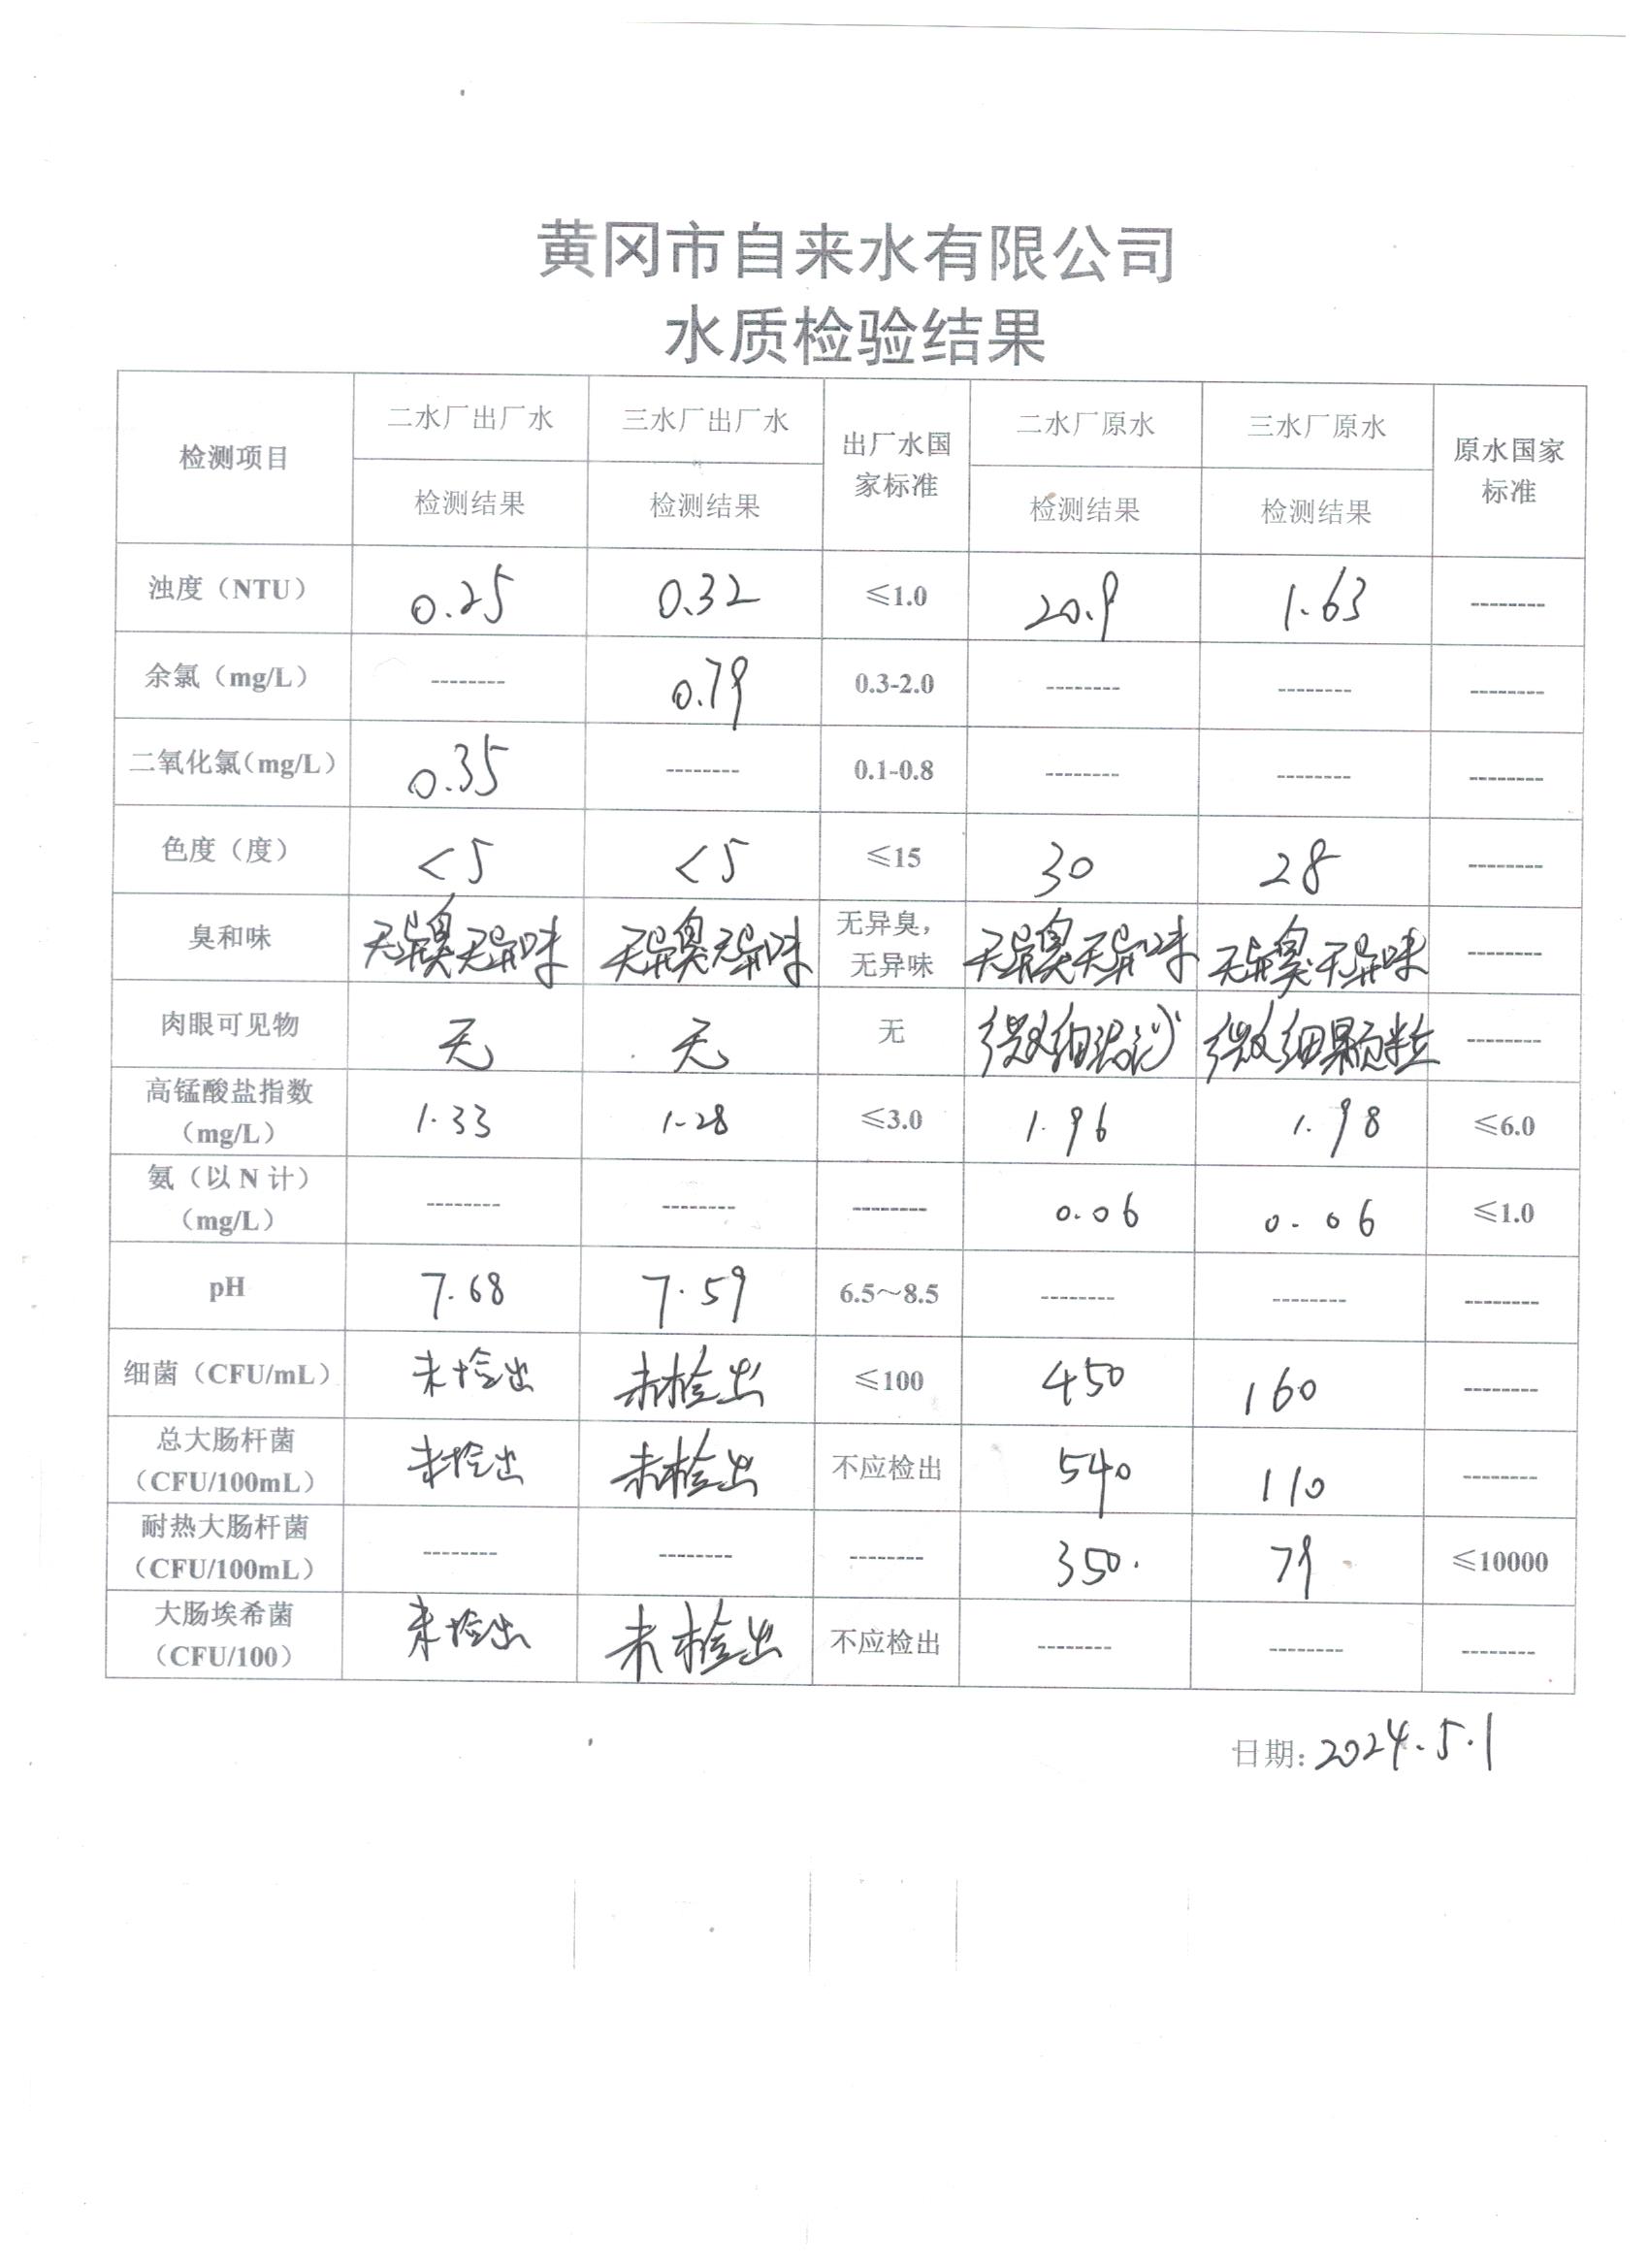 黄冈市自来水有限公司
水质检验结果
检测项目 二水厂出厂水 三水厂出厂水 出厂水国家标准 二水厂原水 三水厂原水 原水国家标准
检测结果 检测结果 检测结果 检测结果
浊度（NTU） 0.25 0.32 ≤1.0 20.9 1.63 --------
余氯（mg/L） -------- 0.79 0.3-2.0 -------- -------- --------
二氧化氯（mg/L） 0.35 -------- 0.1-0.8 -------- -------- --------
色度（度） <5 <5 ≤15 30 28 --------
臭和味 无异臭无异味 无异臭无异味 无异臭，无异味 无异臭无异味 无异臭无异味 --------
肉眼可见物 无 无 无 微细泥沙 微细颗粒 --------
高锰酸盐指数（mg/L） 1.33 1.28 ≤3.0 1.96 1.98 ≤6.0
氨（以 N 计）（mg/L） -------- -------- -------- 0.06 0.06 ≤1.0
pH 7.68 7.59 6.5～8.5 -------- -------- --------
细菌（CFU/mL） 未检出 未检出 ≤100 450 160 --------
总大肠杆菌（CFU/100mL） 未检出 未检出 不应检出 540 110 --------
耐热大肠杆菌（CFU/100mL） -------- -------- -------- 350. 79 ≤10000
大肠埃希菌（CFU/100） 未检出 未检出 不应检出 -------- -------- --------
日期: 2024.5.1